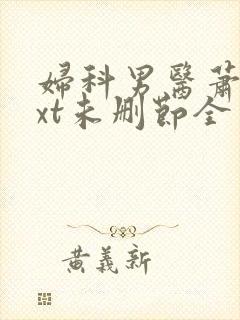 婦科男醫蕭
xt未删節全
黄義新